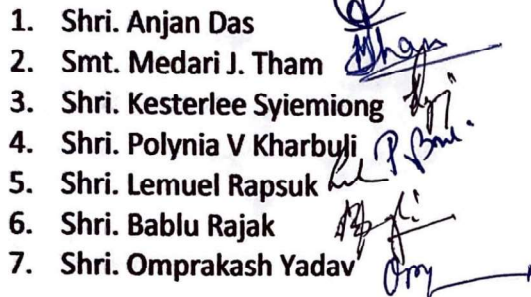 1. Shri. Anjan Das
2. Smt. Medari J. Tham
3. Shri. Kesterlee Syiemiong
4. Shri. Polynia V Kharbuli
5. Shri. Lemuel Rapsuk
6. Shri. Bablu Rajak
7. Shri. Omprakash Yadav